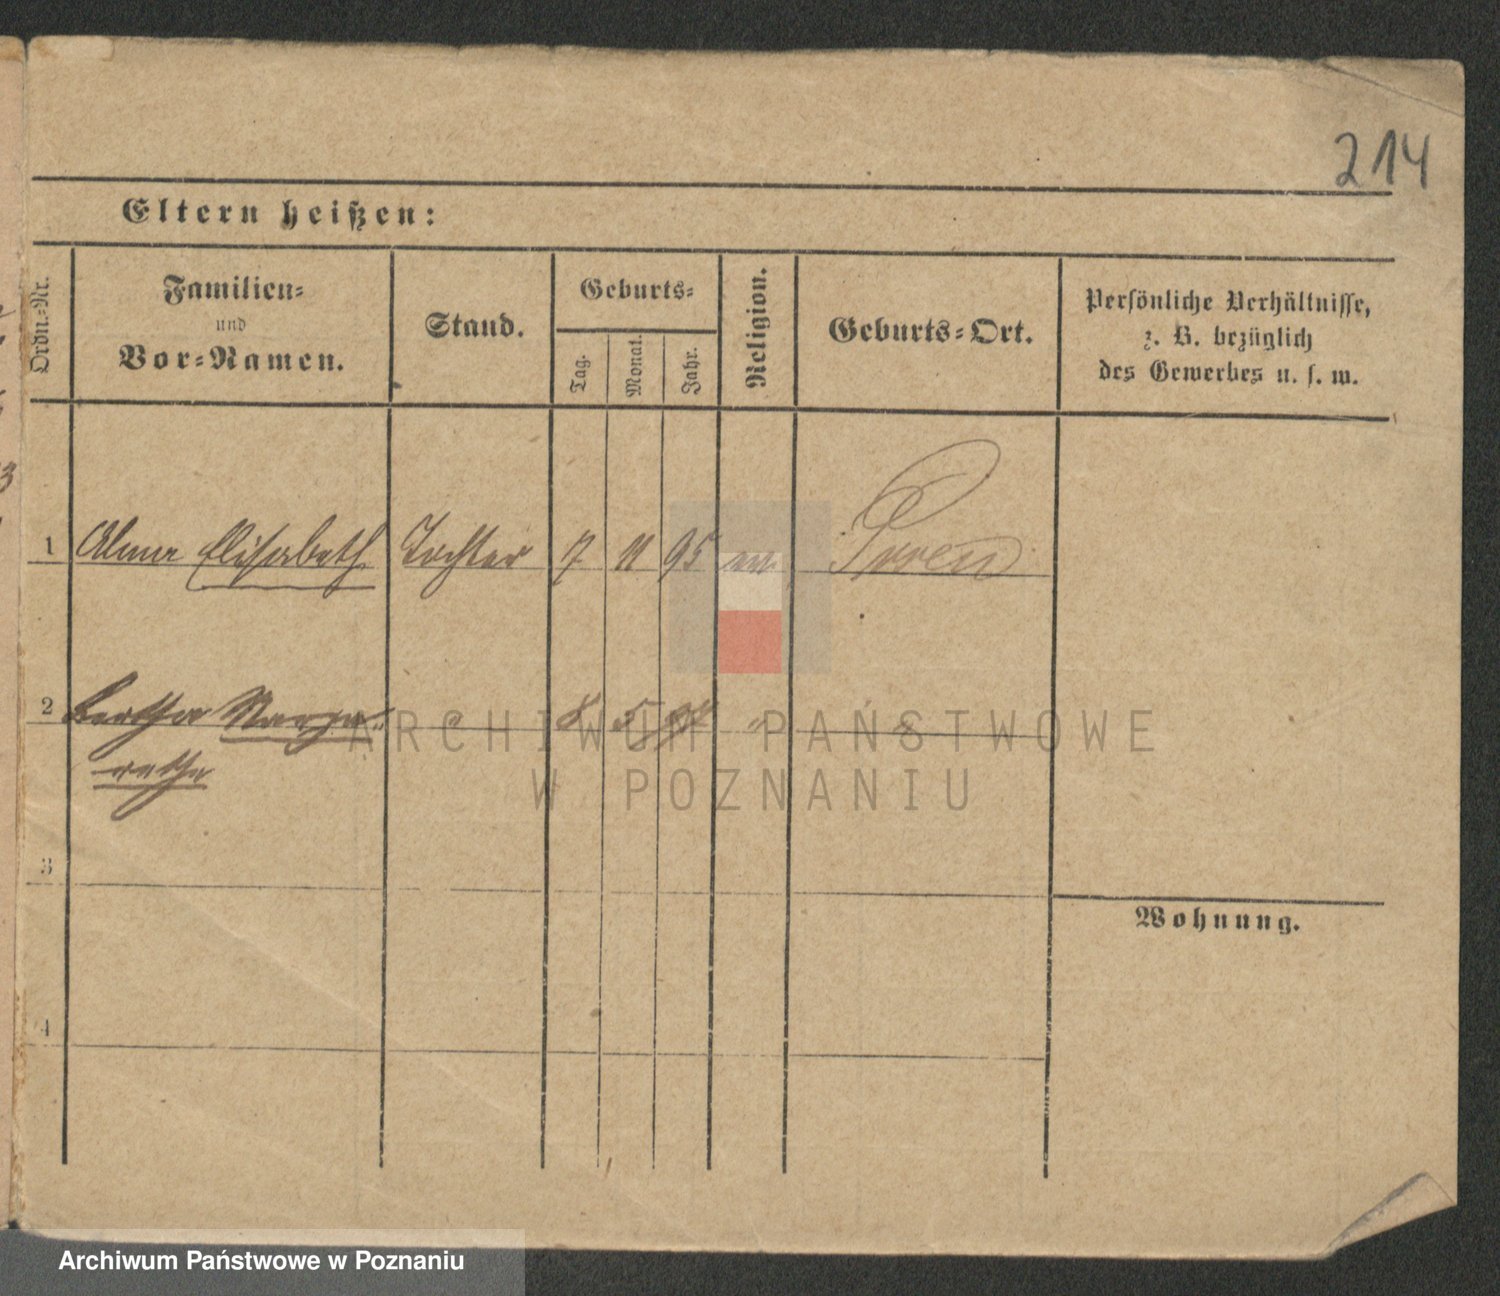 214
Eltern heißen:
Ordn.-Nr.
Familien-
und
Vor-Namen.
Stand.
Geburts-
Tag.
Monat.
Jahr.
Religion.
Geburts-Ort.
Persönliche Verhältnisse,
z. B. bezüglich
des Gewerbes u. s. w.
1 Elisabeth Tochter 7 11 95 ev.
2 Bertha Marga- " 8 5 " "
rethe
3
Wohnung.
4
ARCHIWUM PAŃSTWOWE
W POZNANIU
Archiwum Państwowe w Poznaniu